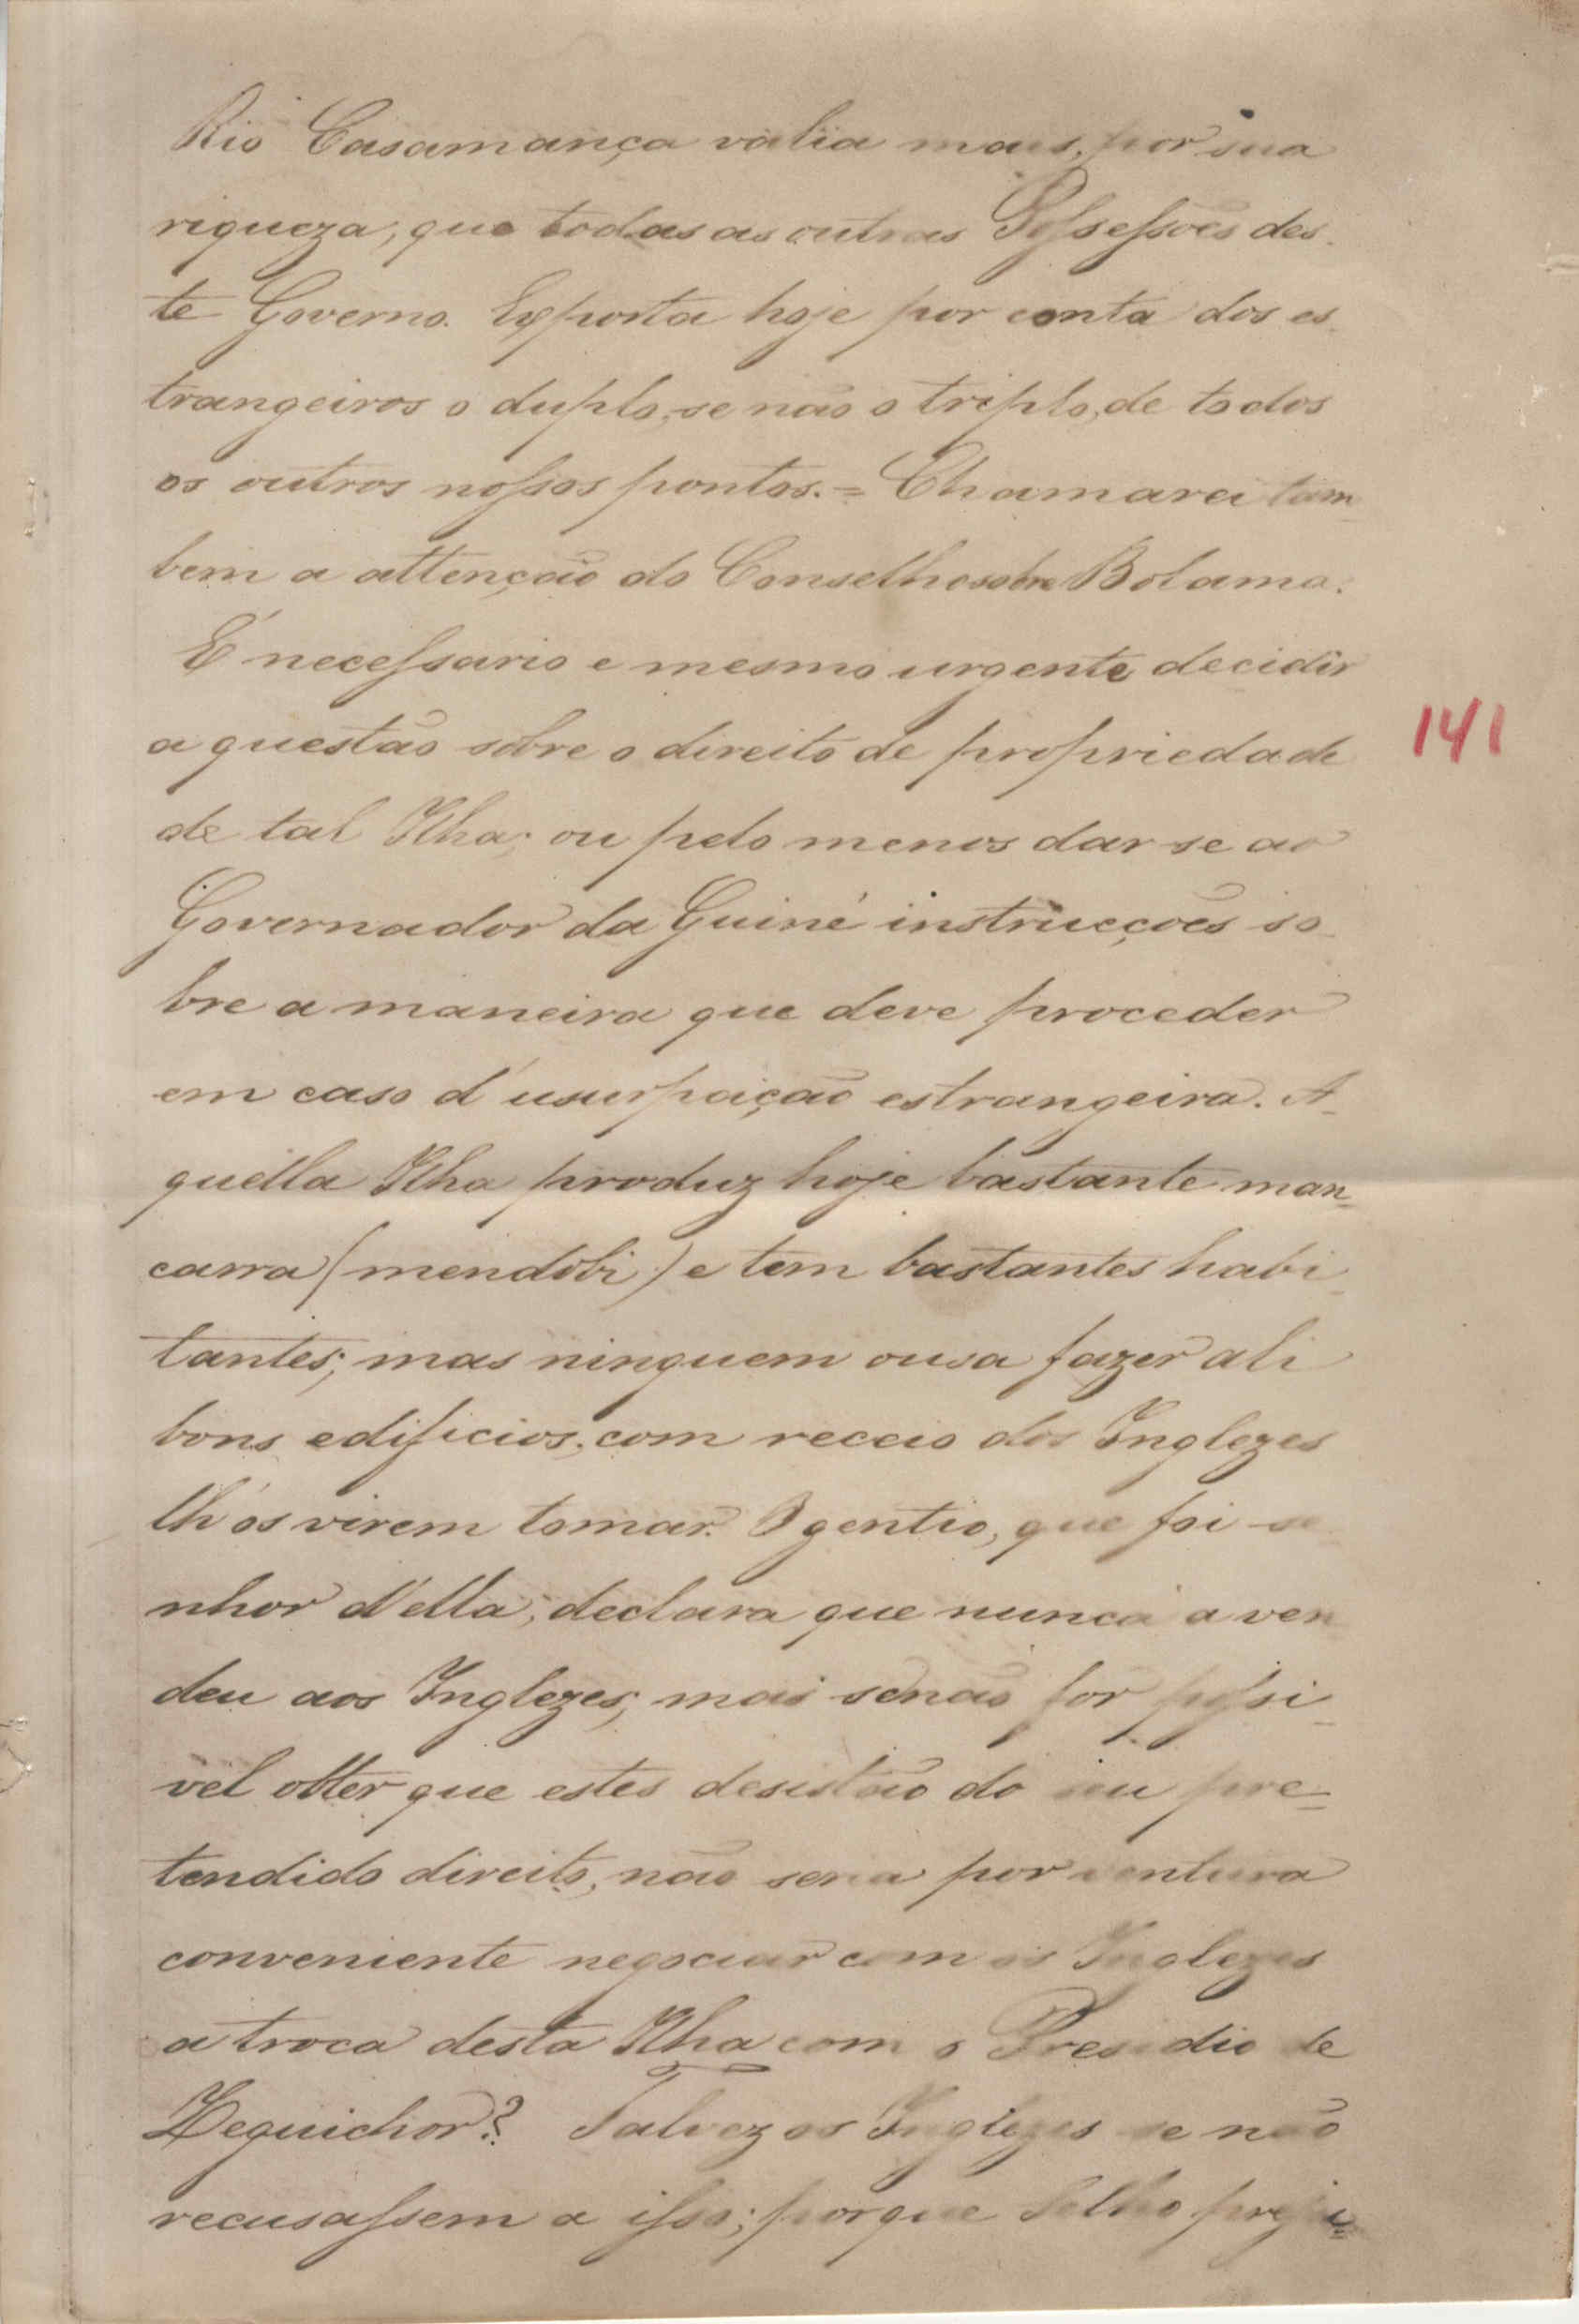 Rio Casamança valia mais, por sua
riqueza, que todas as outras Possessões des-
te Governo. Exporta hoje por conta dos es-
trangeiros o duplo, se não o triplo, de todos
os outros nossos pontos. = Chamarei tam-
bem a attenção do Conselho sobre Bolama.
É necessario e mesmo urgente decidir
a questão sobre o direito de propriedade
141
de tal Ilha; ou pelo menos dar-se ao
Governador da Guiné instrucções so-
bre a maneira que deve proceder
em caso d'usurpação estrangeira. A-
quella Ilha produz hoje bastante man-
carra (mendobi) e tem bastantes habi-
tantes; mas ninguem ousa fazer ali
bons edificios, com receio dos Inglezes
lh'os virem tomar. O gentio, que foi se-
nhor d'ella, declara que nunca a ven
deu aos Inglezes; mas se não for possi-
vel obter que estes desistão do seu pre-
tendido direito, não seria por ventura
conveniente negociar com os Inglezes
a troca desta Ilha com o Presidio de
Zeguichor? Talvez os Inglezes se não
recusassem a isso; porque